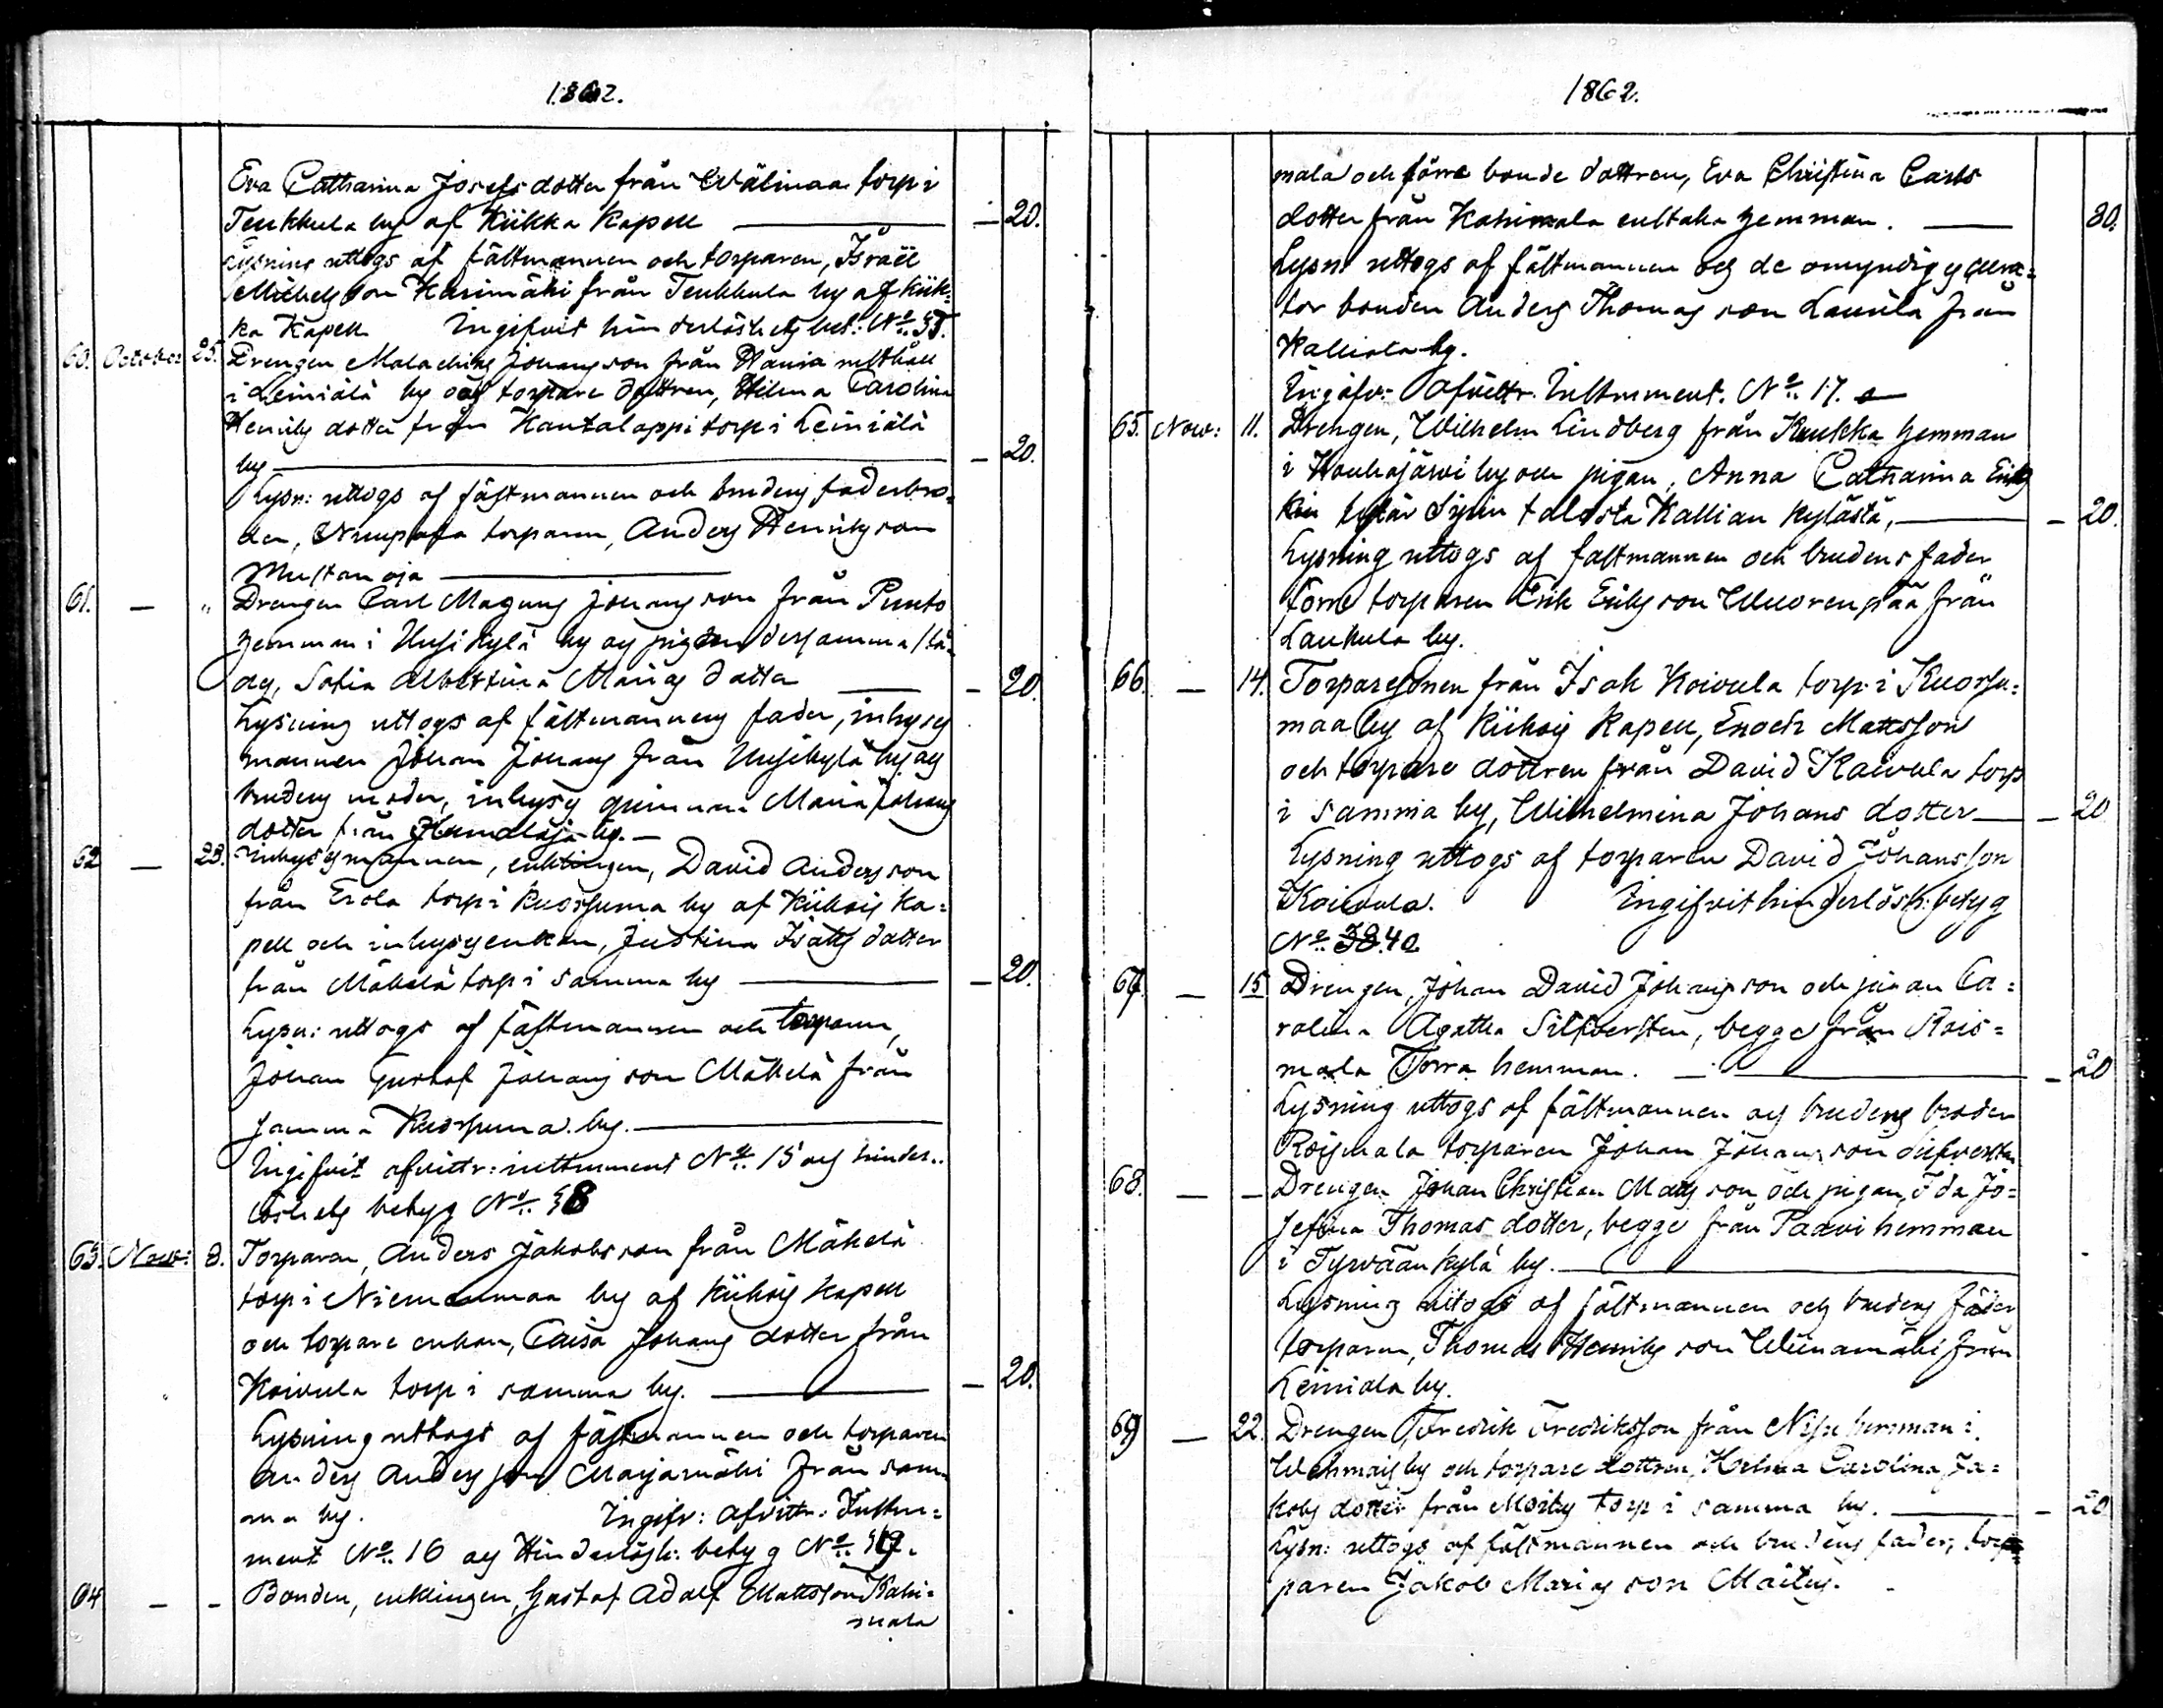 1862.
Eva Catharina Josefs dotter från Wälimaa torp i
Teukkula by af Kiikka Kapell — 20.
Lysning uttogs af fästmannen och torparen, Israël
Michelsson Harimäki från Teukkula by af Kiik-
ka Kapell Ingifvit hinderlöshets bet: No.
60. October 25. Drengen Malachias Johansson från Hannia rusthåll
i Leiniälä by och torpare dottren, Wilma Carolina
Henriks dotter från Kantalappi torp i Leiniälä
by — 20.
Lysn: uttogs af fästmannen och brudens faderbro-
der, torparen, Anders Henriksson
Mustanoja
61. — " Drengen Carl Magnus Johansson från Punto
hemman i Uusikylä by och pigan dersamma stä-
des, Sofia Albertina Marias dotter — 20.
Lysning uttogs af fästmannens fader, inhyses
mannen Johan Johans från Uusikylä by och
brudens moder, inhyses qvinnan Maria Johans
dotter från Humaloja by. —
62 — 28. Inhysesmannen, enklingen, David Andersson
från Erola torp i Kuorsuma by af Kiikois Ka=
pell och inhysesenkan, Justina Isaks dotter
från Mäkelä torp i samma by — 20.
Lysn: uttogs af fästmannen och torparen,
Johan Gustaf Johansson Mäkelä från
samma Kuorsuma by.
Ingifvit afvittr: instrument No. 15 och hinder-
löshets betyg No. 38
63. Nov: 8. Torparen, Anders Jakobsson från Mäkelä
torp i Niemenmaa by af Kiikois Kapell
och torpare enkan, Caisa Johans dotter från
Koivula torp i samma by. — 20.
Lysning uttogs af fästmannen och torparen
Anders Andersson Marjamäki från sam-
ma by. Ingifv: afvittr: Instru=
ment No. 16 och Hinderlösh: betyg No. 39.
64 — — Bonden, enklingen, Gustaf Adolf Mattsson Kahi=
mala
1862.
mala och förre bonde dottren, Eva Christina Carls
dotter från Kahimala eultaka hemman. — 80.
Lysn: uttogs af fästmannen och de omyndiges cura=
tor bonden Anders Thomas son Laurila från
Kalliala by.
Ingifv: Afvittr. Instrument. No. 17.
65. Nov: 11. Drengen, Wilhelm Lindberg från Kaukka hemman
i Houhajärvi by och pigan, Anna Catharina Eriks
tytär Sipin talosta Kallian Kylästä, — 20.
Lysning uttogs af fästmannen och brudens fader
förre torparen Erik Eriksson Wuorenpää från
Laukula by.
66. — 14. Torparesonen från Isak Koivula torp i Kuorsu=
maa by af Kiikois Kapell, Enoch Mattsson
och torpare dottren från David Koivula torp
i samma by, Wilhelmina Johans dotter — 20
Lysning uttogs af torparen David Johansson
Koivula. Ingifvit hinderlösh: betyg
No. 38.40
67. — 15 Drengen, Johan David Johansson och pigan Ca=
rolina Agatha Silfversten, begge från Rois=
mala Torra hemman. — 20
Lysning uttogs af fästmannen och brudens broder
Roismala torparen Johan Johansson Silfversten
68. — — Drengen Johan Christian Matsson och pigan, Ida Jo=
sefina Thomas dotter, begge från Paavi hemman
i Tyrväänkylä by.
Lysning uttogs af fästmannen och brudens fader
torparen, Thomas Henriks son Wiinamäki från
Leiniala by.
69) — 22. Drengen, Fredrik Fredriksson från Nipu hemman i
Wehmais by och torpare dottren, Helena Carolina Ja=
kobs dotter från Moiby torp i samma by. — 20
Lysn: uttogs af fästmannen och brudens fader, tor-
paren Jakob Marias son